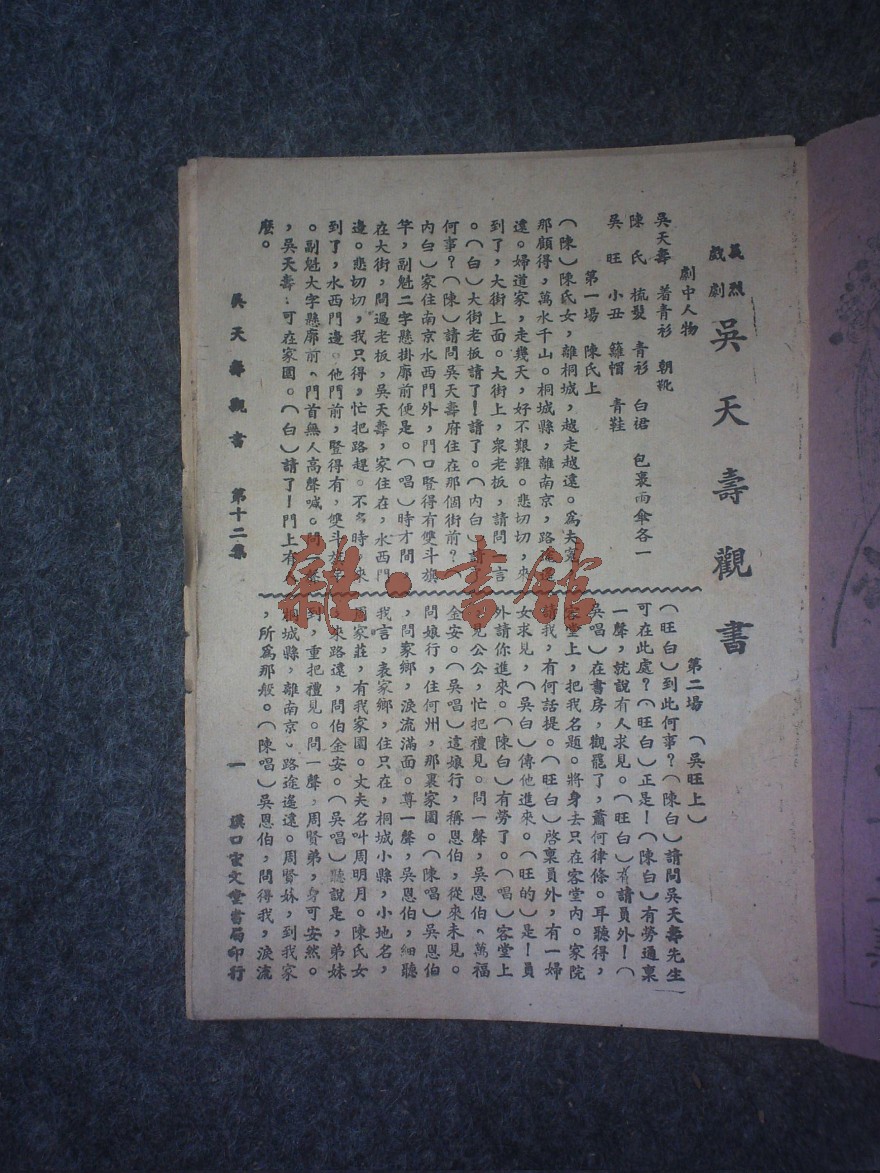 義烈
戲劇
吳天壽觀書
劇中人物
吳天壽 著青衫 朝靴
陳氏 梳髮 青衫 白裙 包裹雨傘各一
吳旺 小丑 羅帽 青鞋
第一場 陳氏上
(陳)陳氏女,離桐城,越走越遠。爲夫寃
那顧得,萬水千山。桐城縣,離南京,路途
遠。婦道家,走幾天,好不艱難。悲切切,來
到了,大街上面。大街上,衆老板,請問一言
。(白)大街老板請了!請了。(內白)請
何事?(陳)請問吳天壽府住在那個街前?
內白)家住南京水西門外,門口豎得有雙斗旗
竿,副魁二字懸掛廓前便是。(唱)時才問
在大街,問過老板,吳天壽,家住在,水西門
邊。悲切切,我只得,忙把路趕。不多時,來
到了,水西門邊。他門前,豎得有,雙斗旗竿
。副魁大字懸廓前,門首無人高聲喊。問一聲
,吳天壽:可在家園。(白)請了!門上有人
麽。
第二場 (吳旺上)
(旺白)到此何事?(陳白)請問吳天壽先生
可在此處?(旺白)正是!(陳白)有勞通稟
一聲,就說有人求見。(旺白)有請員外!(
吳唱)在書房,觀罷了,蕭何律條。耳聽得,
客堂上,把我名題。將身去只在客堂內。家院
請我,有何話提。(旺白)啓稟員外,有一婦
女求見,(吳白)傳他進來。(旺的)是!員
外請你進來。(陳白)有勞了。(唱)客堂上
見公公,忙把禮見。問一聲,吳恩伯、萬福
金安。(吳唱)這娘行,稱恩伯,從來未見。
問娘行,住何州,那裏家園。(陳唱)吳恩伯
,問家鄉,淚流滿面。尊一聲,吳恩伯,細聽
我言,表家鄉,住只在,桐城小縣,小地名,
周家莊,有我家園。丈夫名叫周明月。陳氏女
。來路遠,問伯金安。(吳唱)聽說是,弟妹
到,重把禮見。問一聲,周賢弟,身可安然。
桐城縣,離南京。路途遙遠。周賢妹,到我家
,所爲那般。(陳唱)吳恩伯,問得我,淚流
吳天壽觀書 第十二集
一 漢口宏文堂書局印行
雜·書館